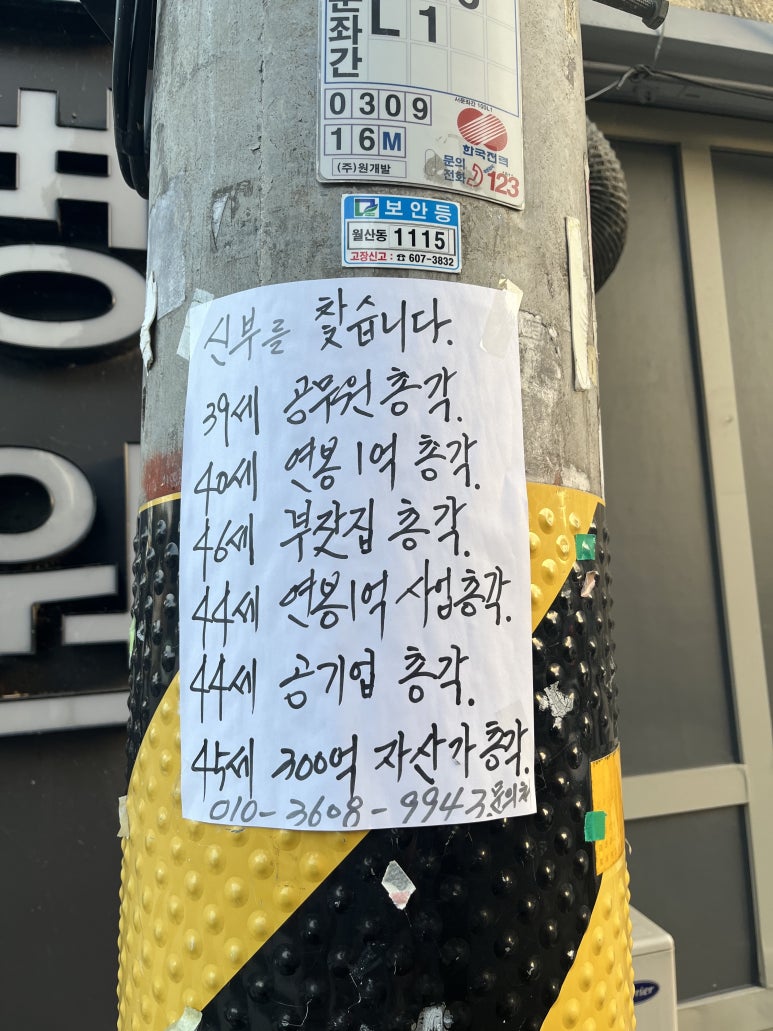 분좌간
L1
0309
16M
(주)원개발
서문좌간 100L1
한국전력
문의전화 123
보안등
월산동 1115
고장신고 : ☎ 607-3832
신부를 찾습니다.
39세 공무원 총각.
40세 연봉 1억 총각.
46세 부잣집 총각.
44세 연봉1억 사업총각.
44세 공기업 총각.
45세 300억 자산가 총각.
010-3608-9943 문의처